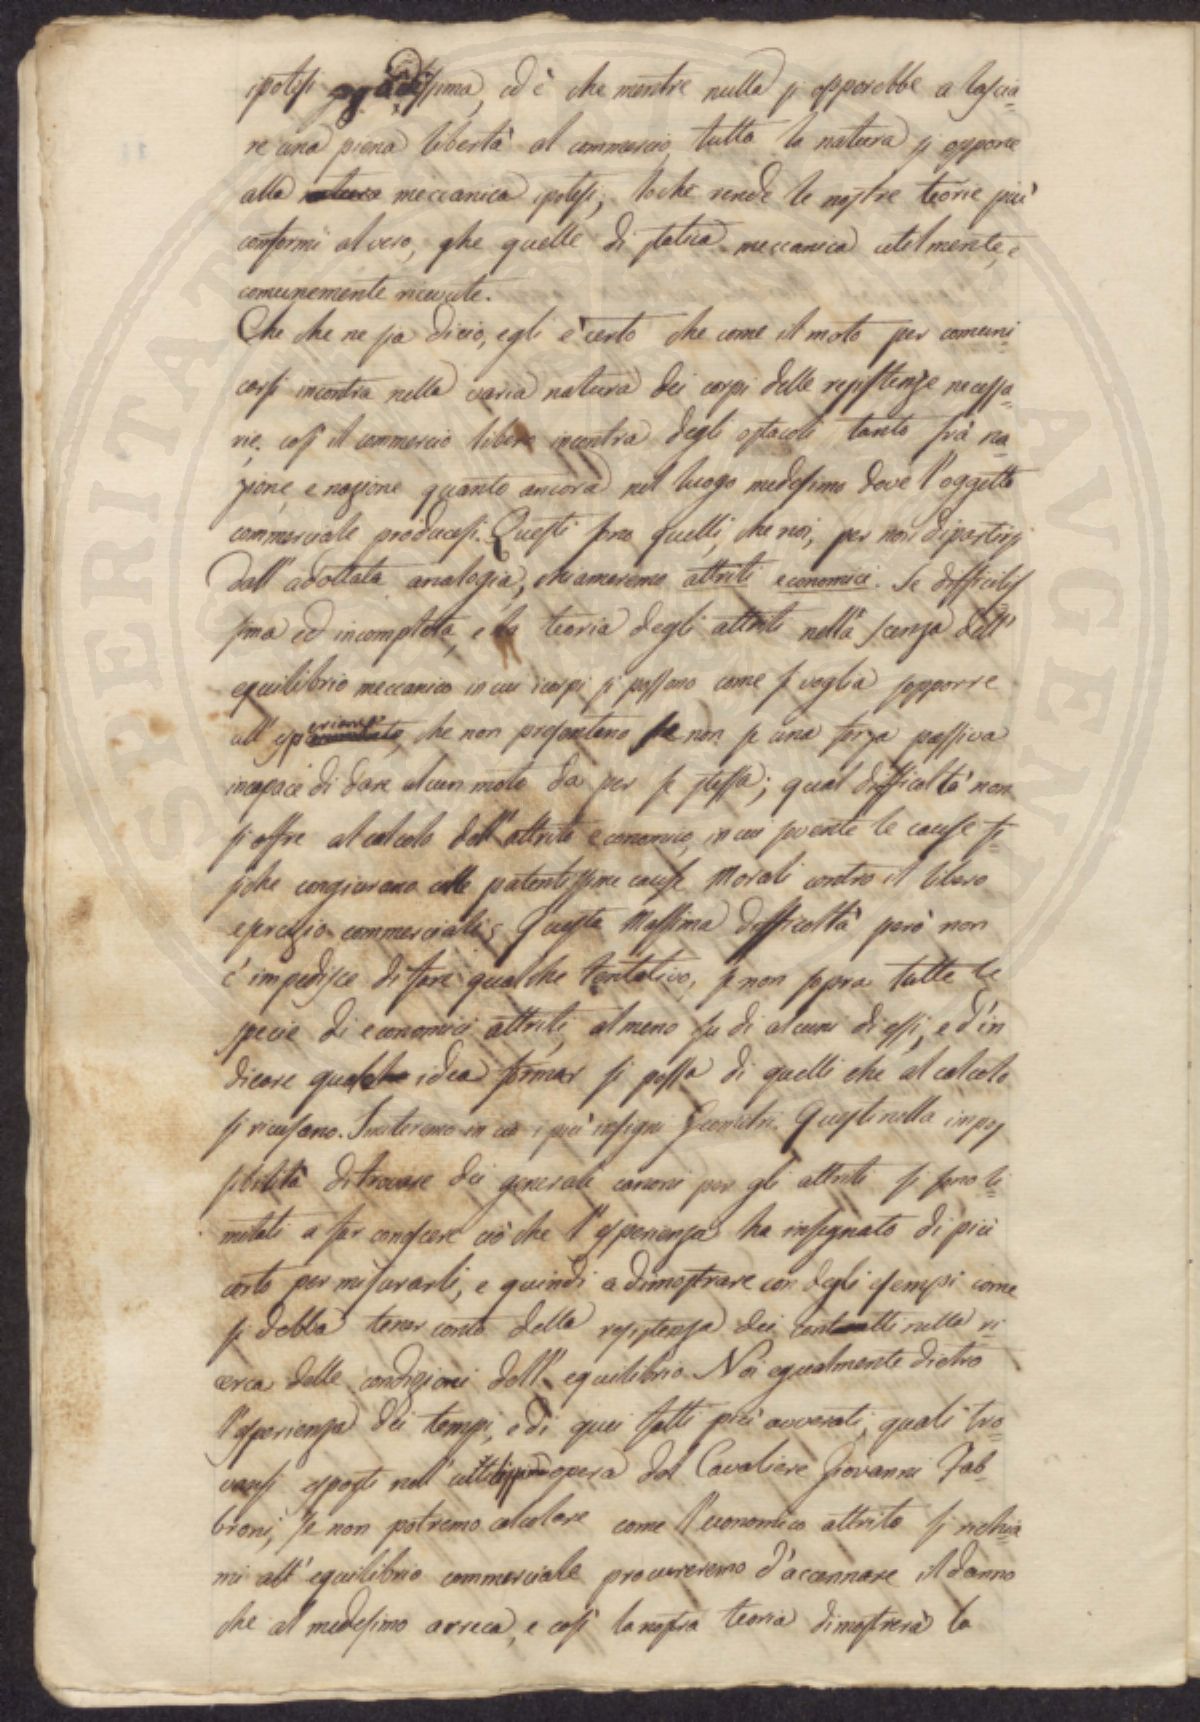 ipotesi ssima, ed è che mentre nulla si opporebbe a lascia-
re una piena libertà al commercio, tutta la natura si oppone
alla natura meccanica ipotesi; loche rende le nostre teorie più
conformi al vero, che quelle di statica meccanica utilmente, e
comunemente ricevute.
Che che ne sia di ciò, egli è certo che come il moto per comuni-
carsi incontra nella varia natura dei corpi delle resistenze necessa-
rie; così il commercio libero incontra degli ostacoli tanto frà na-
zione, e nazione quanto ancora nel luogo medesimo dove l'oggetto
commerciale producesi. Questi sono quelli, che noi, per non dipartirsi
dall'adottata analogia, chiameremo attriti economici. Se difficilis
sima ed incompleta, è la teoria degli attriti nella scenza dell'
equilibrio meccanico in cui i corpi si possono come si voglia sopporre
all' esperienze, che non presentano se non se una forza passiva
incapace di dare alcun moto da per se stessa; qual difficoltà non
si offre al calcolo dell'attrito economico, in cui sovente le cause fi-
siche congiurano colle potentissime cause Morali contro il libero
esercizio commerciale; Questa Massima difficoltà però non
c'impedisce di fare qualche tentativo, se non sopra tutte le
specie di economici attriti, almeno su di alcuni di essi, e d'in
dicare qualche idea formar si possa di quelli che al calcolo
si ricusano. Imiteremo in ciò i più insigni Geometri. Questi nella impos
sibilità di trovare dei generali canoni per gli attriti si sono li-
mitati a far conoscere ciò che l'esperienza ha insegnato di più
certo per misurarli, e quindi a dimostrare con degli esempi come
si debba tener conto della resistenza dei contatti nella ri-
cerca delle condizioni dell'equilibrio. Noi egualmente dietro
l'esperienza dei tempi, e di quei fatti più avverati, quali tro-
vansi esposti nell' opera del Cavaliere Giovanni Fab-
broni, se non potremo calcolare come l'economico attrito si richia-
mi all'equilibrio commerciale procureremo d'accennare il danno
che al medesimo arreca, e così la nostra teoria dimostrerà la